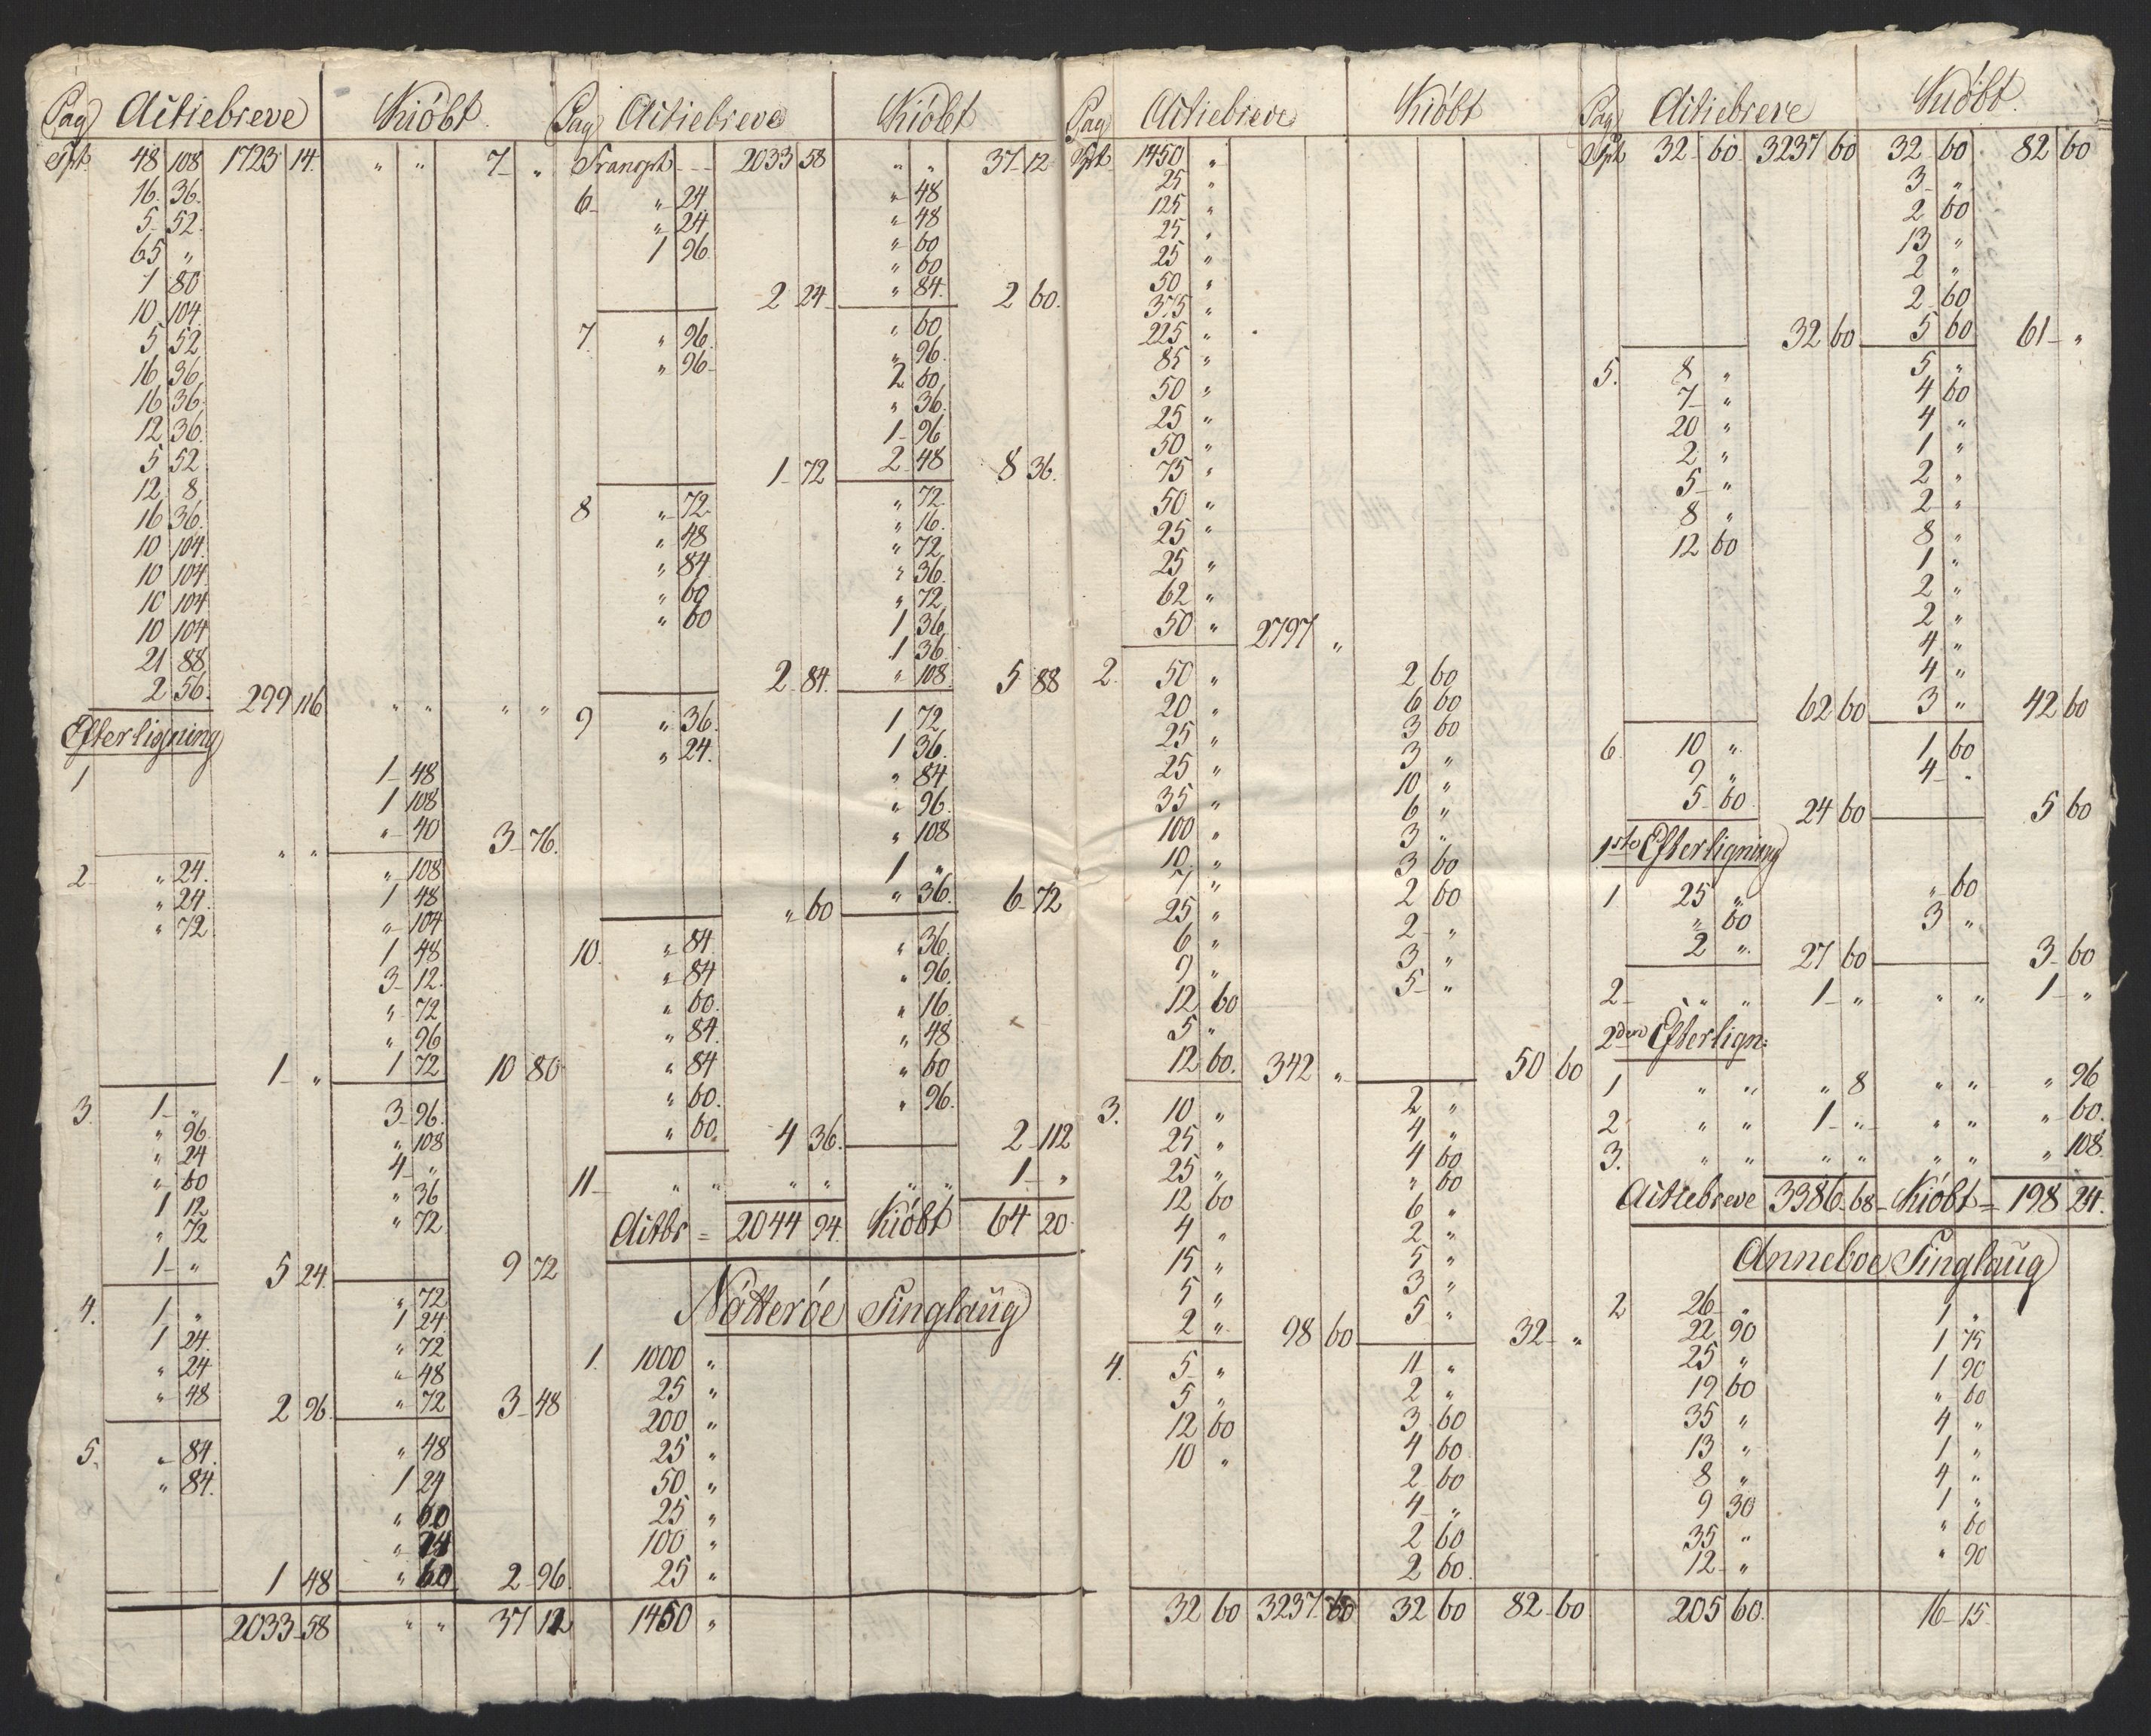 Pag Actiebreve Kiöbt.
Tspt. 48 108 1723 14. " " 7 "
16. 36.
5 52.
65 "
1 80
10 104.
5 52
16 36
16 36.
12 36.
5 52
12 8
16 36.
10 104.
10 104
10 104
10 104
21 88
2 56. 299 116 " " " "
Efterligning
1 1 48
1 108
" " " 40 3 76.
2 " 24. " 108
" 24. 1 48
" 72 " 104
1 48
3 12.
" 72
" 96
1 " 1 72 10 80
3. 1 " 3 96.
" 96. " 108
" 24 4 "
" 60 " 36
1 12 " 72
" 72
1 " 5 24. 9 72
4. 1 " " 72
1 24. 1 24
" 24 " 72
" 48 " 48
2 96. " 72 3 48
5. " 84. " 48
" 84. 1 24
" 60
" 24
1 48 " 60 2 96
2033 58 " " 37 12
Pag Actiebreve Kiöbt
Transpt 2033 58 " " 37 12
6 " 24 " 48
" 24 " 48
1 96 " 60
" 60
2 24 " 84. 2 60.
7. " 96. " 60
" 96 " 96.
2 60
" 36.
1 96
1 72 2 48 8 36.
8 " 72. " 72
" 48 " 16.
" 84 " 72
" 60 " 36.
" 60 " 72
1 36
1 36
2 84. " 108. 5 88
9 " 36. 1 72
" 24. 1 36.
" 84
" 96.
" 108
1 "
" 60 " 36. 6 72
10. " 84 " 36.
" 84 " 96.
" 60. " 16.
" 84. " 48
" 84 " 60
" 60. " 96.
" 60. 4 36. 2 112
11 " " " " " " 1 "
Actbr = 2044 94. Kiöbt 64 20
Nötteröe Tinglaug
1. 1000 "
25 "
200 "
25 "
50 "
25 "
100 "
25 "
1450 "
Pag Actiebreve Kiöbt
Tspt. 1450 "
25 "
125 "
25 "
25 "
50 "
375 "
225 "
85 "
50 "
25 "
50 "
75 "
50 "
25 "
25 "
62 "
50 " 2797 "
2. 50 " 2 60
20 " 6 60
25 " 3 60
25 " 3 "
35 " 10 "
100 " 6 "
10 " 3 "
7 " 3 60
25 " 2 60
6 " 2 "
9 " 3 "
12 60 5 "
5 "
12 60. 342 " 50 60
3. 10 " 2 "
25 " 4 "
25 " 4 60
12 60 " 60
4 " 6 "
15 " 2 "
5 " 5 "
2 " 3 "
98 60 5 " 32 "
4. 5 " 11 "
5 " 2 "
12 60 3 60
10 " 4 60
2 60
4 "
2 60
2 60.
32 60 3237 60 32 60 82 60
Pag Actiebreve Kiöbt.
Tspt 32 60 3237 60 32 60 82 60
3 "
2 60
13 "
2 "
2 60
32 60 5 60 61 "
5. 8 " 5 "
7 " 4 60
20 " 4 "
2 " 1 "
5 " 2 "
8 " 2 "
12 60 8 "
1 "
2 "
2 "
4 "
4 "
62 60 3 " 42 60
6 10 " 1 60
9 " 4 "
5 60 24 60 5 60
1ste Efterligning
1 25 " " 60
" 60 3 "
2 " 27 60 3 60
2 " " 1 " " " 1 "
2den Efterlign:
1 " " " 8 " " " 96
2 " " 1 " " " " 60.
3. " " " " " " " 108.
Actiebreve 3386 68 Kiöbt = 198 24.
Anneboe Tinglaug
2 26 " 1 "
22 90 1 75
25 " 1 90
19 60 " 60
35 " 4 "
13 " 1 "
8 " 4 "
9 30 1 "
35 " " 60
12 " " 90
205 60. 16 15